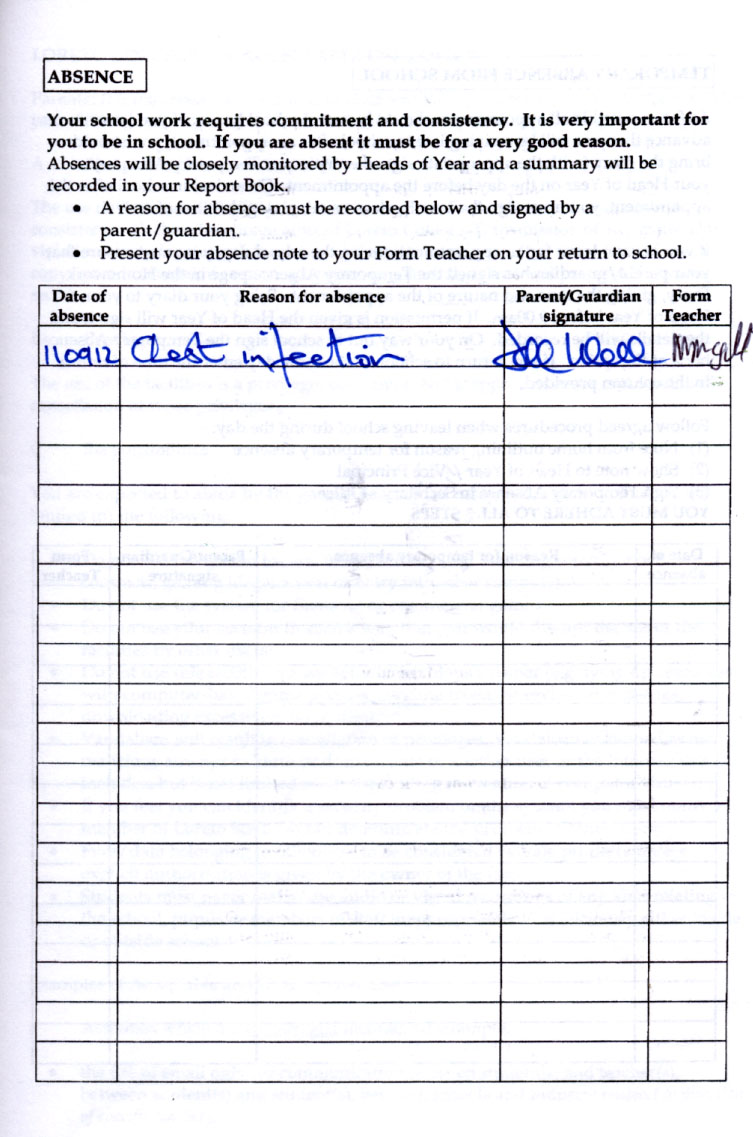 ABSENCE
Your school work requires commitment and consistency. It is very important for
you to be in school. If you are absent it must be for a very good reason.
Absences will be closely monitored by Heads of Year and a summary will be
recorded in your Report Book.
• A reason for absence must be recorded below and signed by a
parent/guardian.
• Present your absence note to your Form Teacher on your return to school.
Date of absence Reason for absence Parent/Guardian signature Form Teacher
110912 Chest infection